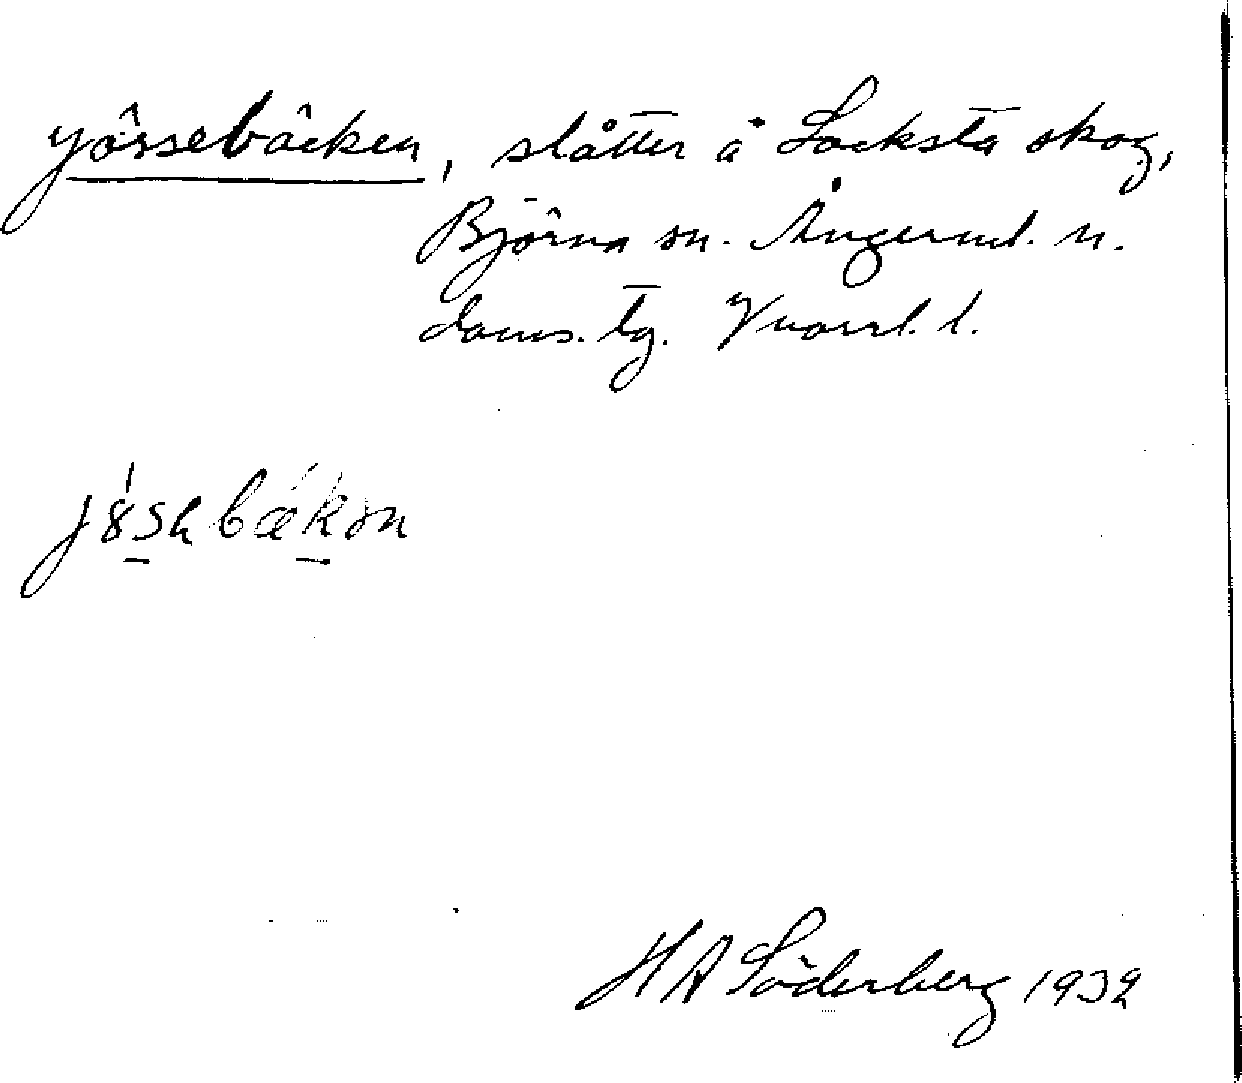 Jössebäcken, slåtter å Locksta skog,
Björna sn. Ångerml. n.
doms. tg. Vnorrl. l.
jösabækən
H A Söderberg 1932